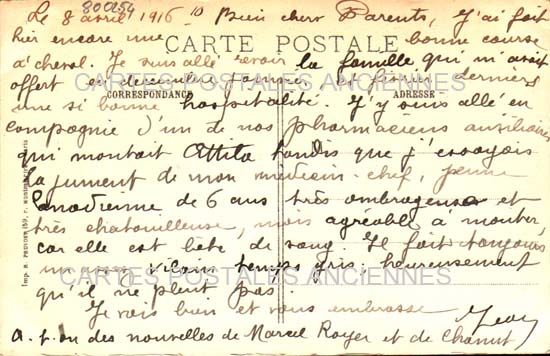 800254
Le 8 avril 1916 - Bien chers Parents, J'ai fait
hier encore une bonne course
CARTE POSTALE
à cheval. Je suis allé revoir la famille qui m'avait
offert en décembre janvier et février derniers
CARTES POSTALES ANCIENNES
CORRESPONDANCE ADRESSE
une si bonne hospitalité. J'y suis allé en
compagnie d'un de nos pharmaciens auxiliaires
qui montait Attila tandis que j'essayais
la jument de mon médecin-chef, jeune
Canadienne de 6 ans très ombrageuse et
très chatouilleuse, mais agréable à monter,
car elle est bête de sang. Il fait toujours
un vilain temps gris, heureusement
CARTES POSTALES ANCIENNES
qu'il ne pleut pas.
Je vais bien et vous embrasse
Jean
A-t-on des nouvelles de Marcel Royer et de Chanut
Imp. 159, r.